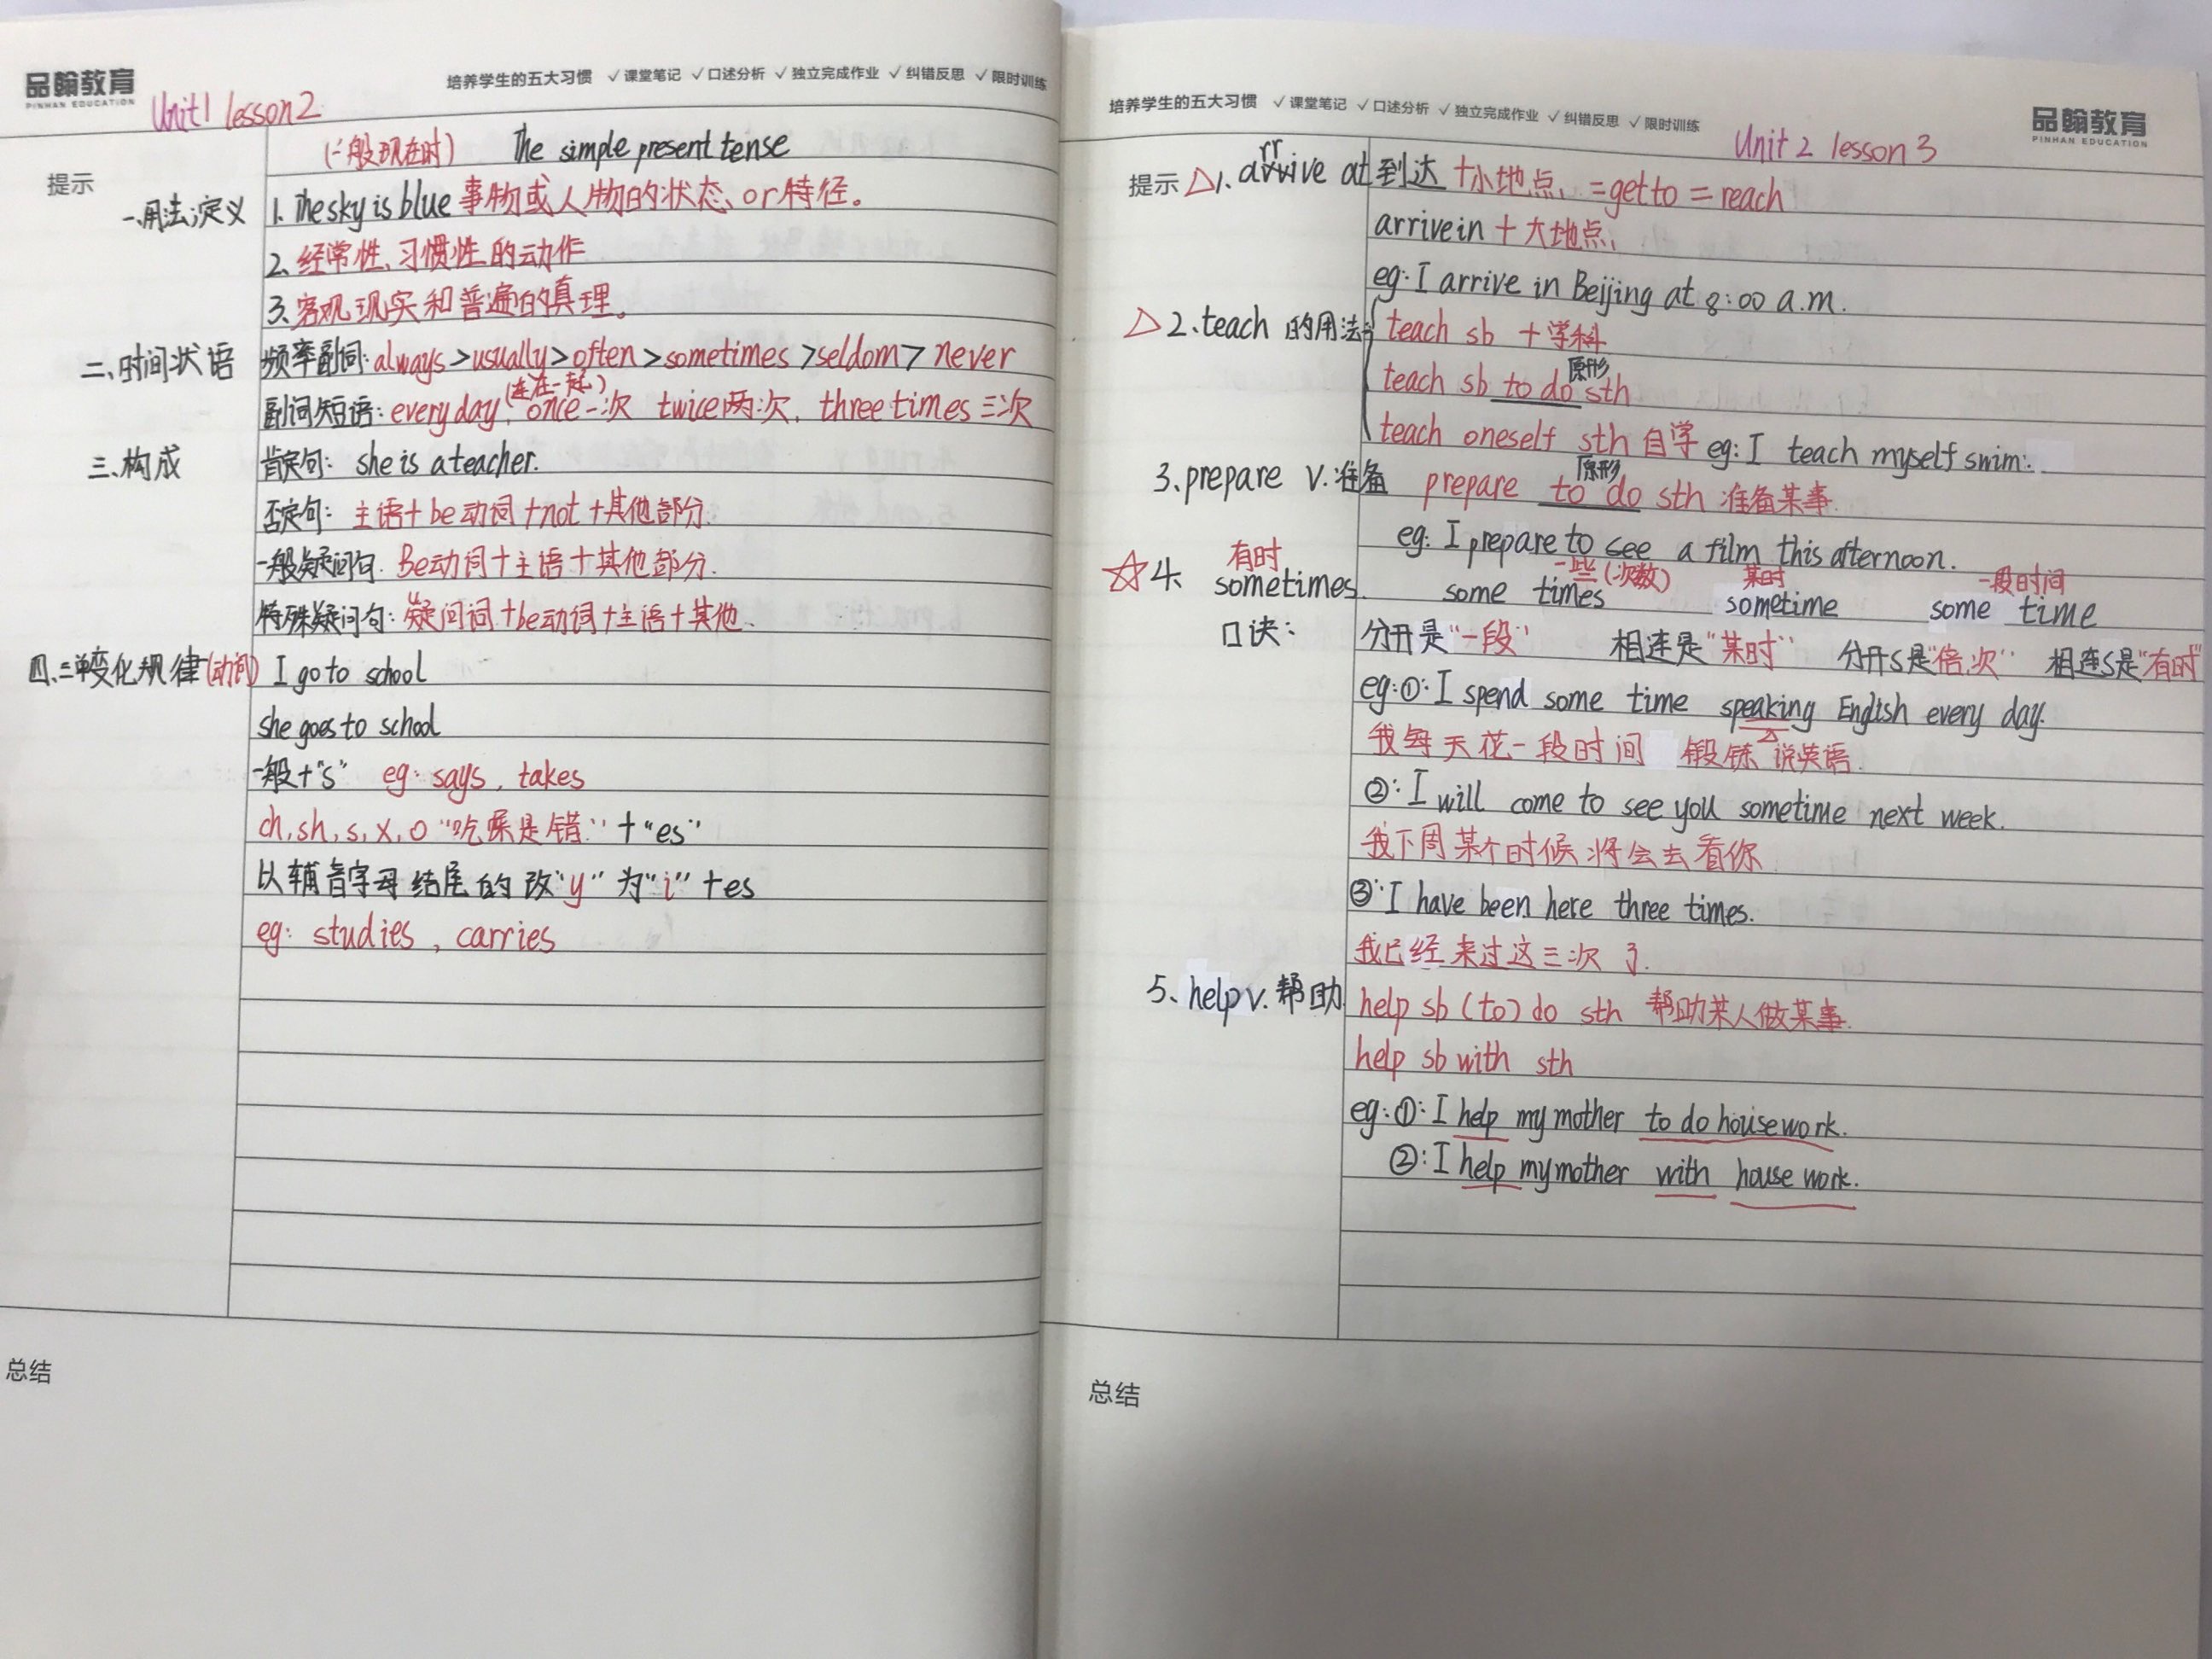 品翰教育
PINHAN EDUCATION
培养学生的五大习惯 ✓课堂笔记 ✓口述分析 ✓独立完成作业 ✓纠错反思 ✓限时训练
Unit1 lesson2
(一般现在时) The simple present tense
提示
一、用法定义 1. The sky is blue 事物或人物的状态、or特径。
2、经常性、习惯性的动作
3、客观现实和普遍的真理。
二、时间状语 频率副词: always>usually>often>sometimes>seldom>never
(连在一起)
副词短语: everyday, once一次 twice两次, three times三次
三、构成 肯定句: she is a teacher.
否定句: 主语+be动词+not+其他部分.
一般疑问句. Be动词+主语+其他部分.
特殊疑问句: 疑问词+be动词+主语+其他.
四、三单变化规律(动词) I go to school
she goes to school
一般+"s" eg: says, takes
ch, sh, s, x, o "吃屎是错" +"es"
以辅音字母结尾的改"y"为"i"+es
eg: studies, carries
总结
培养学生的五大习惯 ✓课堂笔记 ✓口述分析 ✓独立完成作业 ✓纠错反思 ✓限时训练
品翰教育
PINHAN EDUCATION
Unit 2 lesson 3
rr
提示 △1. arrive at 到达 +小地点, =get to = reach
arrive in + 大地点,
eg: I arrive in Beijing at 8:00 a.m.
△2. teach 的用法: teach sb +学科
原形
teach sb to do sth
teach oneself sth 自学 eg: I teach myself swim.
原形
3. prepare v. 准备 prepare to do sth 准备某事.
eg: I prepare to see a film this afternoon.
有时 一些(次数) 某时 一段时间
☆4、 sometimes some times sometime some time
口诀: 分开是"一段" 相连是"某时" 分开s是"倍、次" 相连s是"有时"
eg:①: I spend some time speaking English every day.
我每天花一段时间 锻练说英语.
②: I will come to see you sometime next week.
我下周某个时候将会去看你
③: I have been here three times.
我已经来过这三次了.
5、help v. 帮助 help sb (to) do sth 帮助某人做某事.
help sb with sth
eg:①: I help my mother to do housework.
②: I help my mother with house work.
总结